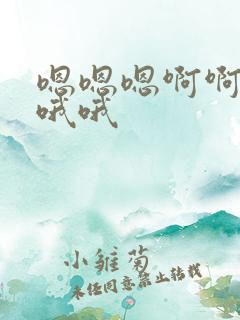 嗯嗯嗯啊啊
哦哦
小雏菊
未经同意禁止转载